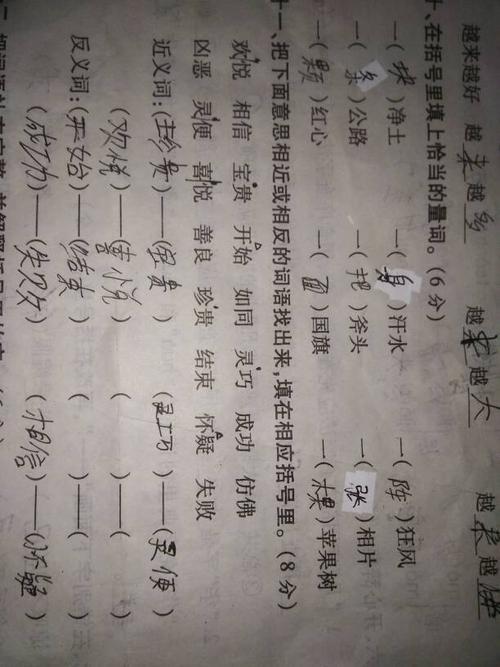 越来越好 越来越多 越来越大 越来越
十、在括号里填上恰当的量词。(6分)
一(块)净土 一(身)汗水 一(阵)狂风
一(条)公路 一(把)斧头 一(张)相片
一(颗)红心 一(面)国旗 一(棵)苹果树
十一、把下面意思相近或相反的词语找出来,填在相应括号里。(8分)
欢悦 相信 宝贵 开始 如同 灵巧 成功 仿佛
凶恶 灵便 喜悦 善良 珍贵 结束 怀疑 失败
近义词:(珍贵)——(宝贵) (灵巧)——(灵便)
(欢悦)——(喜悦) ( )——( )
反义词:(开始)——(结束) ( )——( )
(成功)——(失败) (相信)——(怀疑)